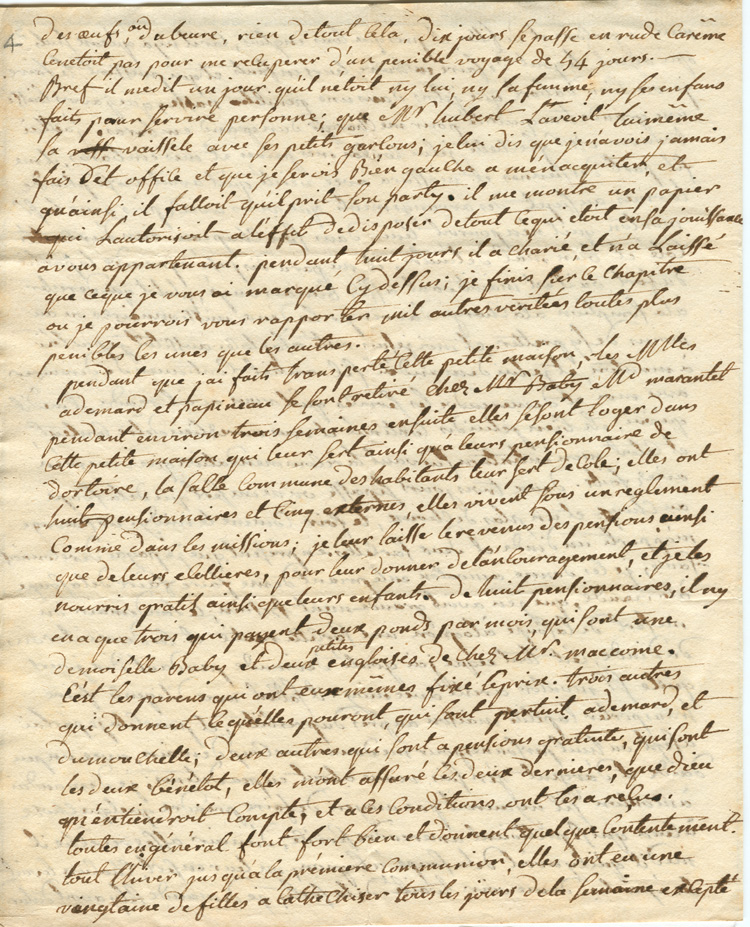 4
des œufs, ou d'abeure, rien de tout cela, dix jours se passe en rude Carême
Cenetoit pas pour me recuperer d'un penible voyage de 44 jours. —
Bref il medit un jour qu'il n'etoit ny lui, ny sa famme, ny ses enfans
faits pour servire personne; que Mr hubert Laveroit lui même
sa vaissele avec ses petits garcons; je lui dis que je n'avois jamais
fais Cet office et que je serois Bien gauche a m'en acquiter, et
qu'ainsi, il falloit qu'il prit son party. il me montre un papier
qui L'autorisoit a l'effet de disposer de tout ce qui etoit en sa jouissance
a vous appartenant. pendant huit jours il a charié et n'a Laissé
que ceque je vous ai marqué Cydessus; je finis sur le Chapitre
ou je pourrois vous rapporter mil autres veritées toutes plus
penibles les unes que les autres.
pendant que j'ai faits transporté Cette petite maison, les Mlles
ademard et papineau se sont retiré chez Mr Baby et Md marantet
pendant environ trois semaines ensuite elles se sont loger dans
Cette petite maison qui leur sert ainsi qu'a leurs pensionnaire de
dortoire, la salle Commune des habitants leur sert d'ecole; elles ont
huit pensionnaires et Cinq externes, elles vivent sous un reglement
Comme dans les missions; je leur laisse le revenus des pensions ainsi
que de leurs ecollieres, pour leur donner de l'ancouragement, et je les
nourris gratis ainsi que leurs enfants. De huit pensionnaires, il ny
en a que trois qui payent deux ponds par mois qui sont une
demoiselle Baby et deux petites engloises de chez Mr. maccome.
C'est les parens qui ont eux mêmes fixé le prix. trois autres
qui donnent le qu'elles pouront, qui sont pertuit, ademard, et
dumouchelle; deux autres qui sont a pensions gratuite, qui sont
les deux bénétot, elles m'ont assuré les deux dernieres, que dieu
qu'en tiendroit Compte, et a les Conditions ont les a reçus.
toutes en général font fort bien et donnent quelque Contentement.
tout l'hiver jusqu'à la prémiere Communion, elles ont eu une
vingtaine de filles a cathechiser tous les jours de la semaine excepté